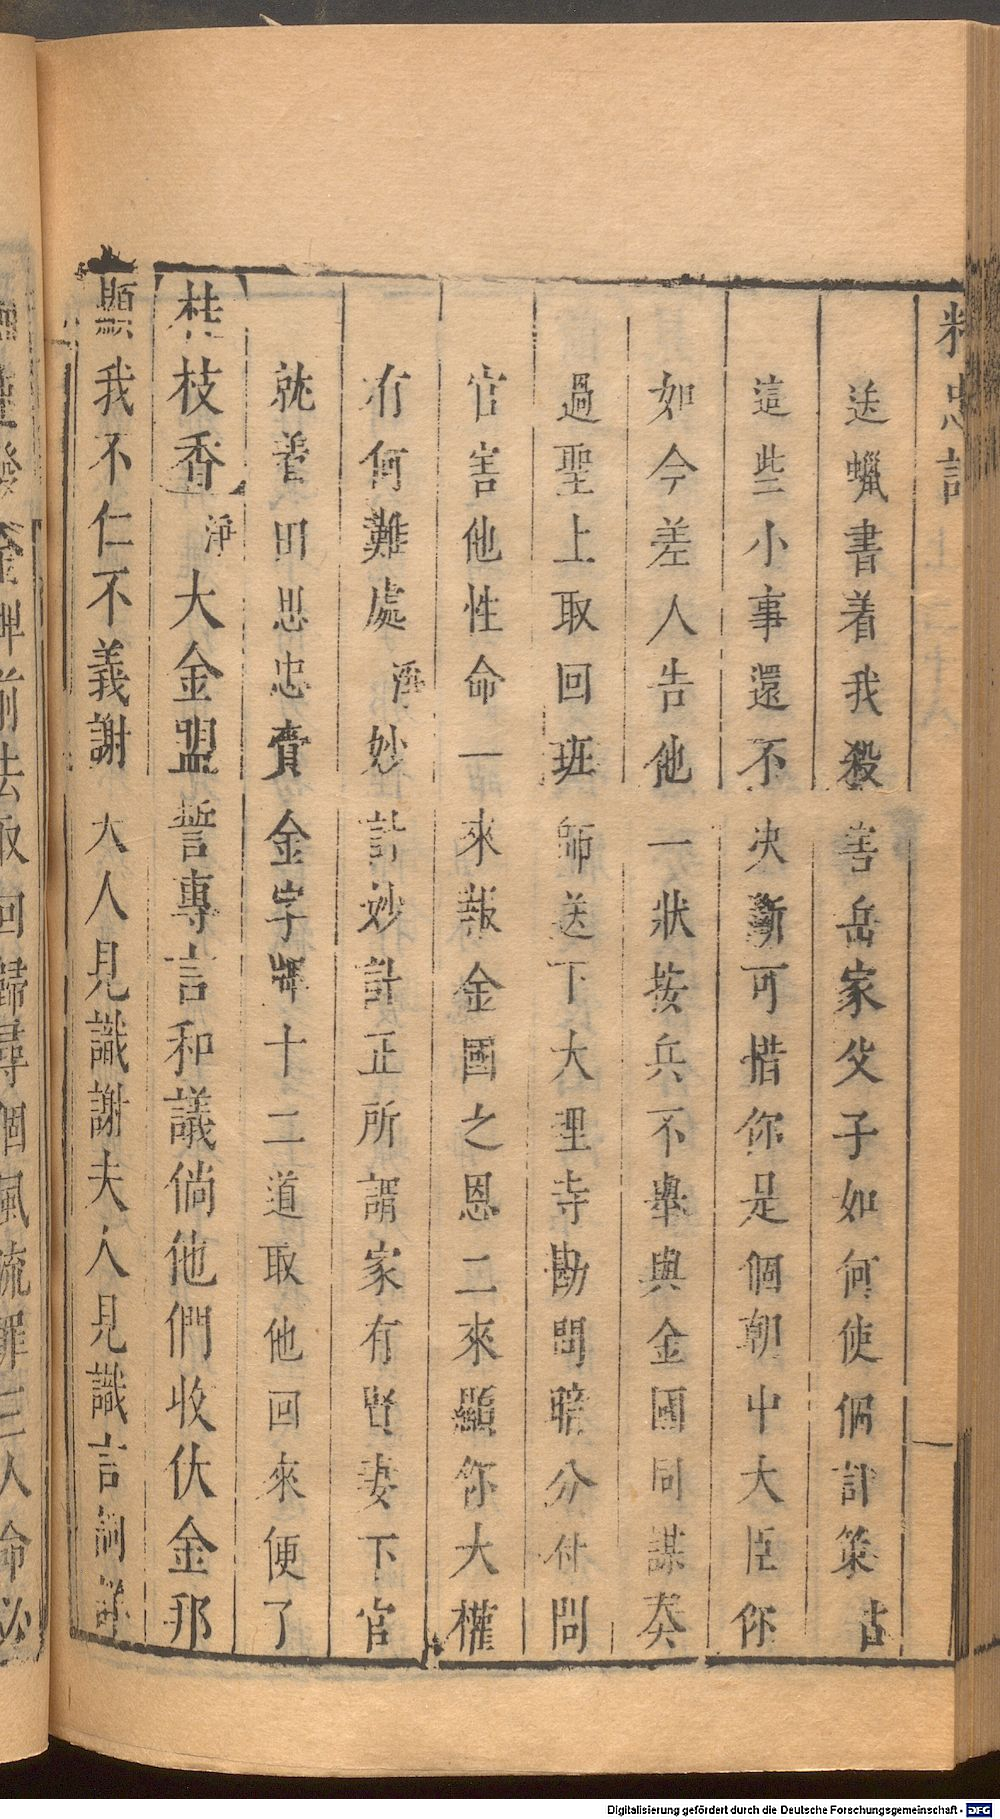 精忠記
送蠟書着我殺害岳家父子如何使個計策占
這些小事還不决斷可惜你是個朝中大臣你
如今差人告他一狀按兵不舉與金國同謀奏
過聖上取回班師送下大理寺勘問暗分付問
官害他性命一來報金國之恩二來顯你大權
有何難處淨妙計妙計正所謂家有賢妻下官
就着田思忠賫金字牌十二道取他回來便了
桂枝香淨大金盟誓專言和議倘他們收伏金邦
顯我不仁不義謝夫人見識謝夫人見識言詞
金牌前去取回歸尋個風流罪三人命必
Digitalisierung gefördert durch die Deutsche Forschungsgemeinschaft - DFG